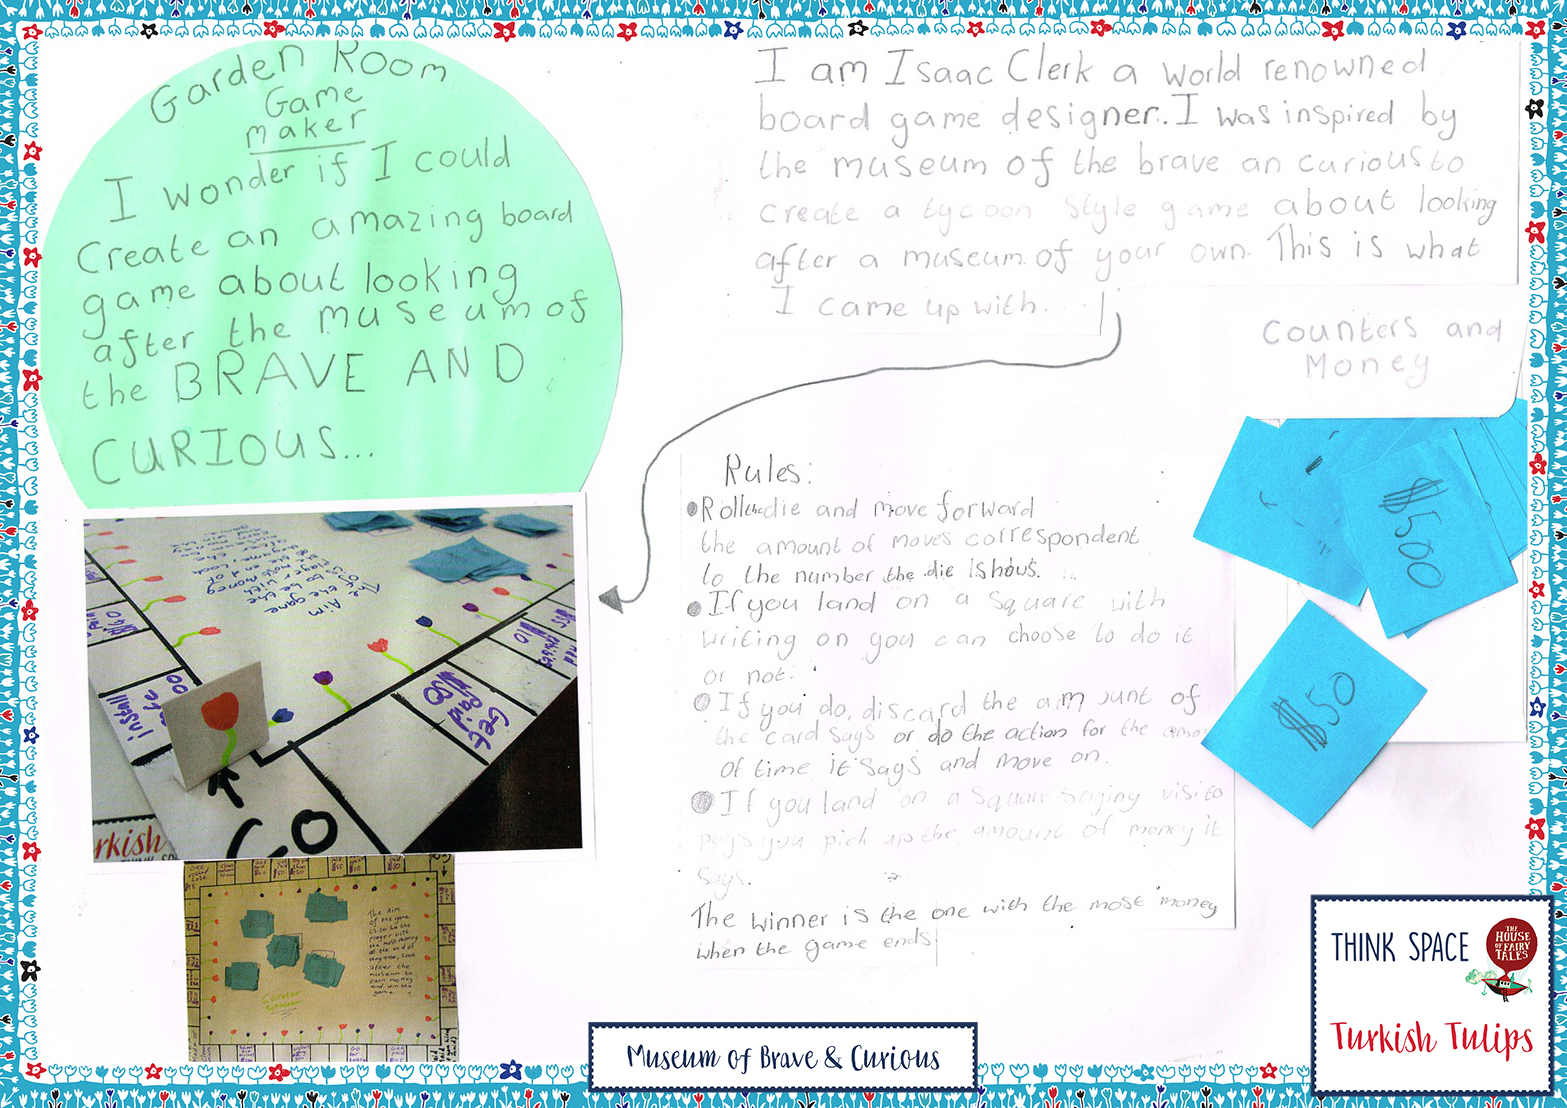 Garden Room
Game
maker
I wonder if I could
Create an amazing board
game about looking
after the museum of
the BRAVE AND
CURIOUS...
I am Isaac Clerk a world renowned
board game designer. I was inspired by
the museum of the brave an curious to
create a tycoon style game about looking
after a museum of your own. This is what
I came up with....
Counters and
Money
$500
$50
Rules:
Roll the die and move forward
the amount of moves correspondent
to the number the die
If you land on a square with
writing on you can choose to do it
or not.
If you do, discard the amount of
the card says or do the action for the
of time it says and move on.
If you land on a square saying
pays you pick up the amount of money it
says.
The winner is the one with the most money
when the game ends
The Aim
of the game
is to be the
player with
the most money
at the end of
the game. Look
after the
museum to
earn money
and win the
game.
install
Get
paid
$50
GO
rkish
Curator
THINK SPACE
THE
HOUSE
OF FAIRY
TALES
Turkish Tulips
Museum of Brave & Curious